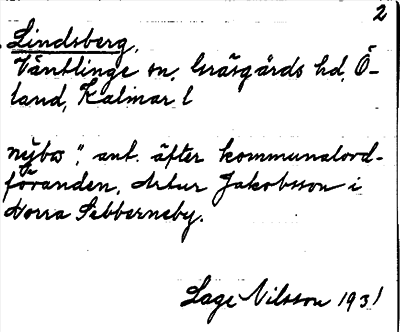 2
Lindsberg,
Ventlinge sn, Gräsgårds hd, Ö-
land, Kalmar l
nybo", ant. äfter kommunalord-
föranden, Artur Jakobsson i
Norra Sebberneby.
Lage Nilsson 1931